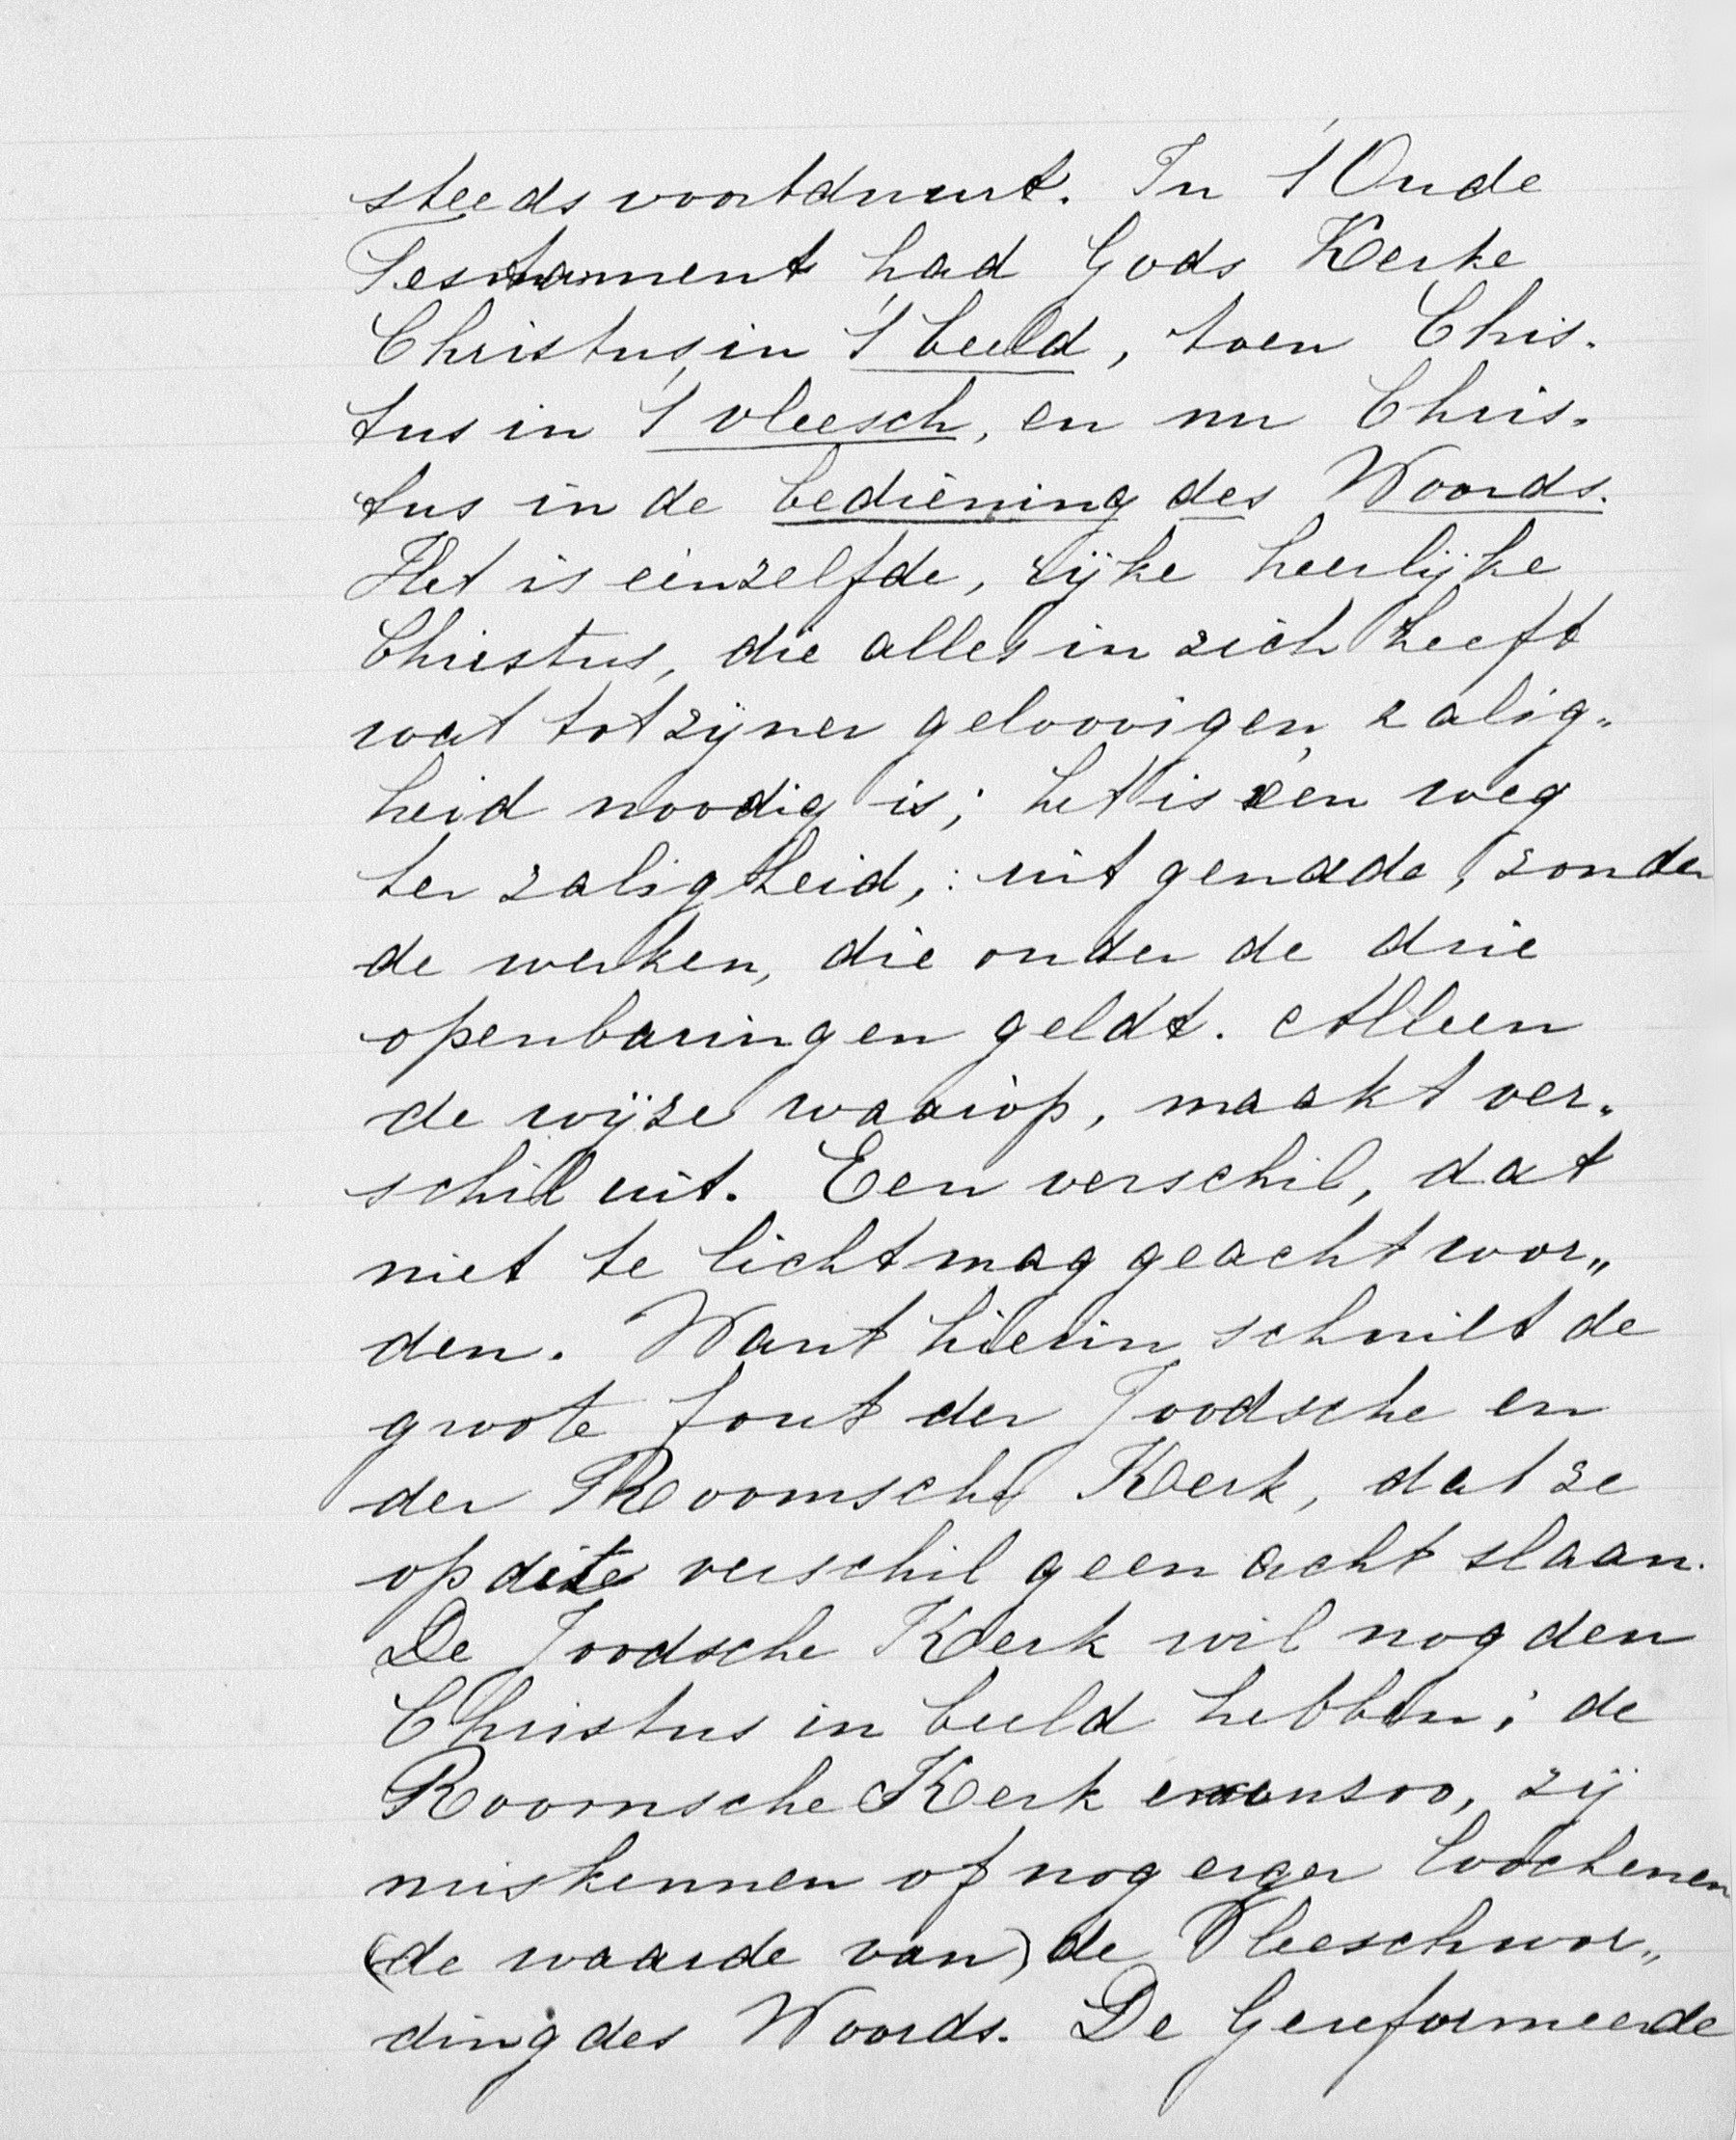 steeds voortduurt. In 't Oude
Testament had Gods Kerke
Christus, in 't beeld, toen Chris-
tus in 't vleesch, en nu Chris-
tus in de bediening des Woords.
Het is éénzelfde, rijke heerlijke
Christus, die alles in zich heeft
wat tot zijner geloovigen zalig-
heid noodig is; het is één weg
ter zaligheid,: uit genade, zonder
de werken, die onder de drie
openbaringen geldt. Alleen
de wijze waarop, maakt ver-
schil uit. Een verschil, dat
niet te licht mag geacht wor„
den. Want hierin schuilt de
groote fout der Joodsche en
der Roomsche Kerk, dat ze
op dit verschil geen acht slaan.
De Joodsche Kerk wil nog den
Christus in beeld hebben; de
Roomsche Kerk evenzoo, zij
miskennen of nog erger loochenen
(de waarde van) de Vleeschwor„
ding des Woords. De Gereformeerde